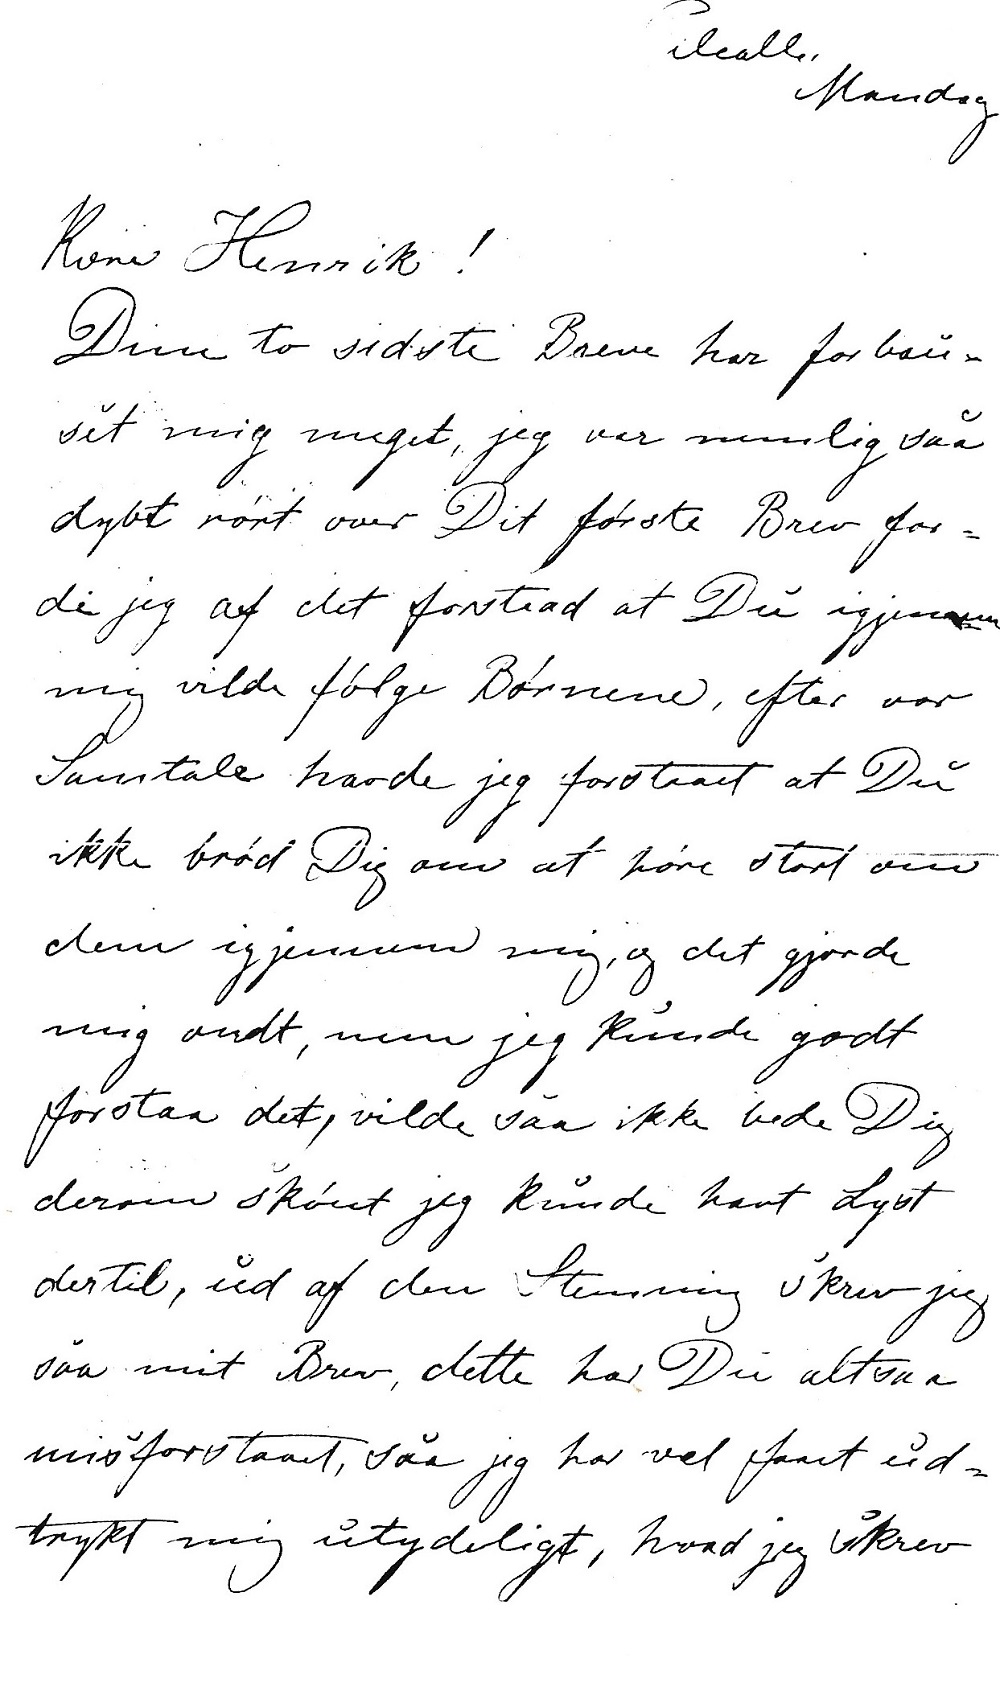 Pilealle,
Mandag
Kære Henrik!
Dine to sidste Breve har forbau-
set mig meget, jeg var nemlig saa
dybt rørt over Dit første Brev for-
di jeg af det forstaad at Du igjennem
mig vilde følge Børnene, efter vor
Samtale havde jeg forstaaet at Du
ikke brød Dig om at høre stort om
dem igjennem mig, og det gjorde
mig ondt, men jeg kunde godt
forstaa det, vilde saa ikke bede Dig
derom skønt jeg kunde havt Lyst
dertil, ud af den Stemning skrev jeg
saa mit Brev, dette har Du altsaa
misforstaaet, saa jeg har vel faaet ud-
trykt mig utydeligt, hvad jeg skrev